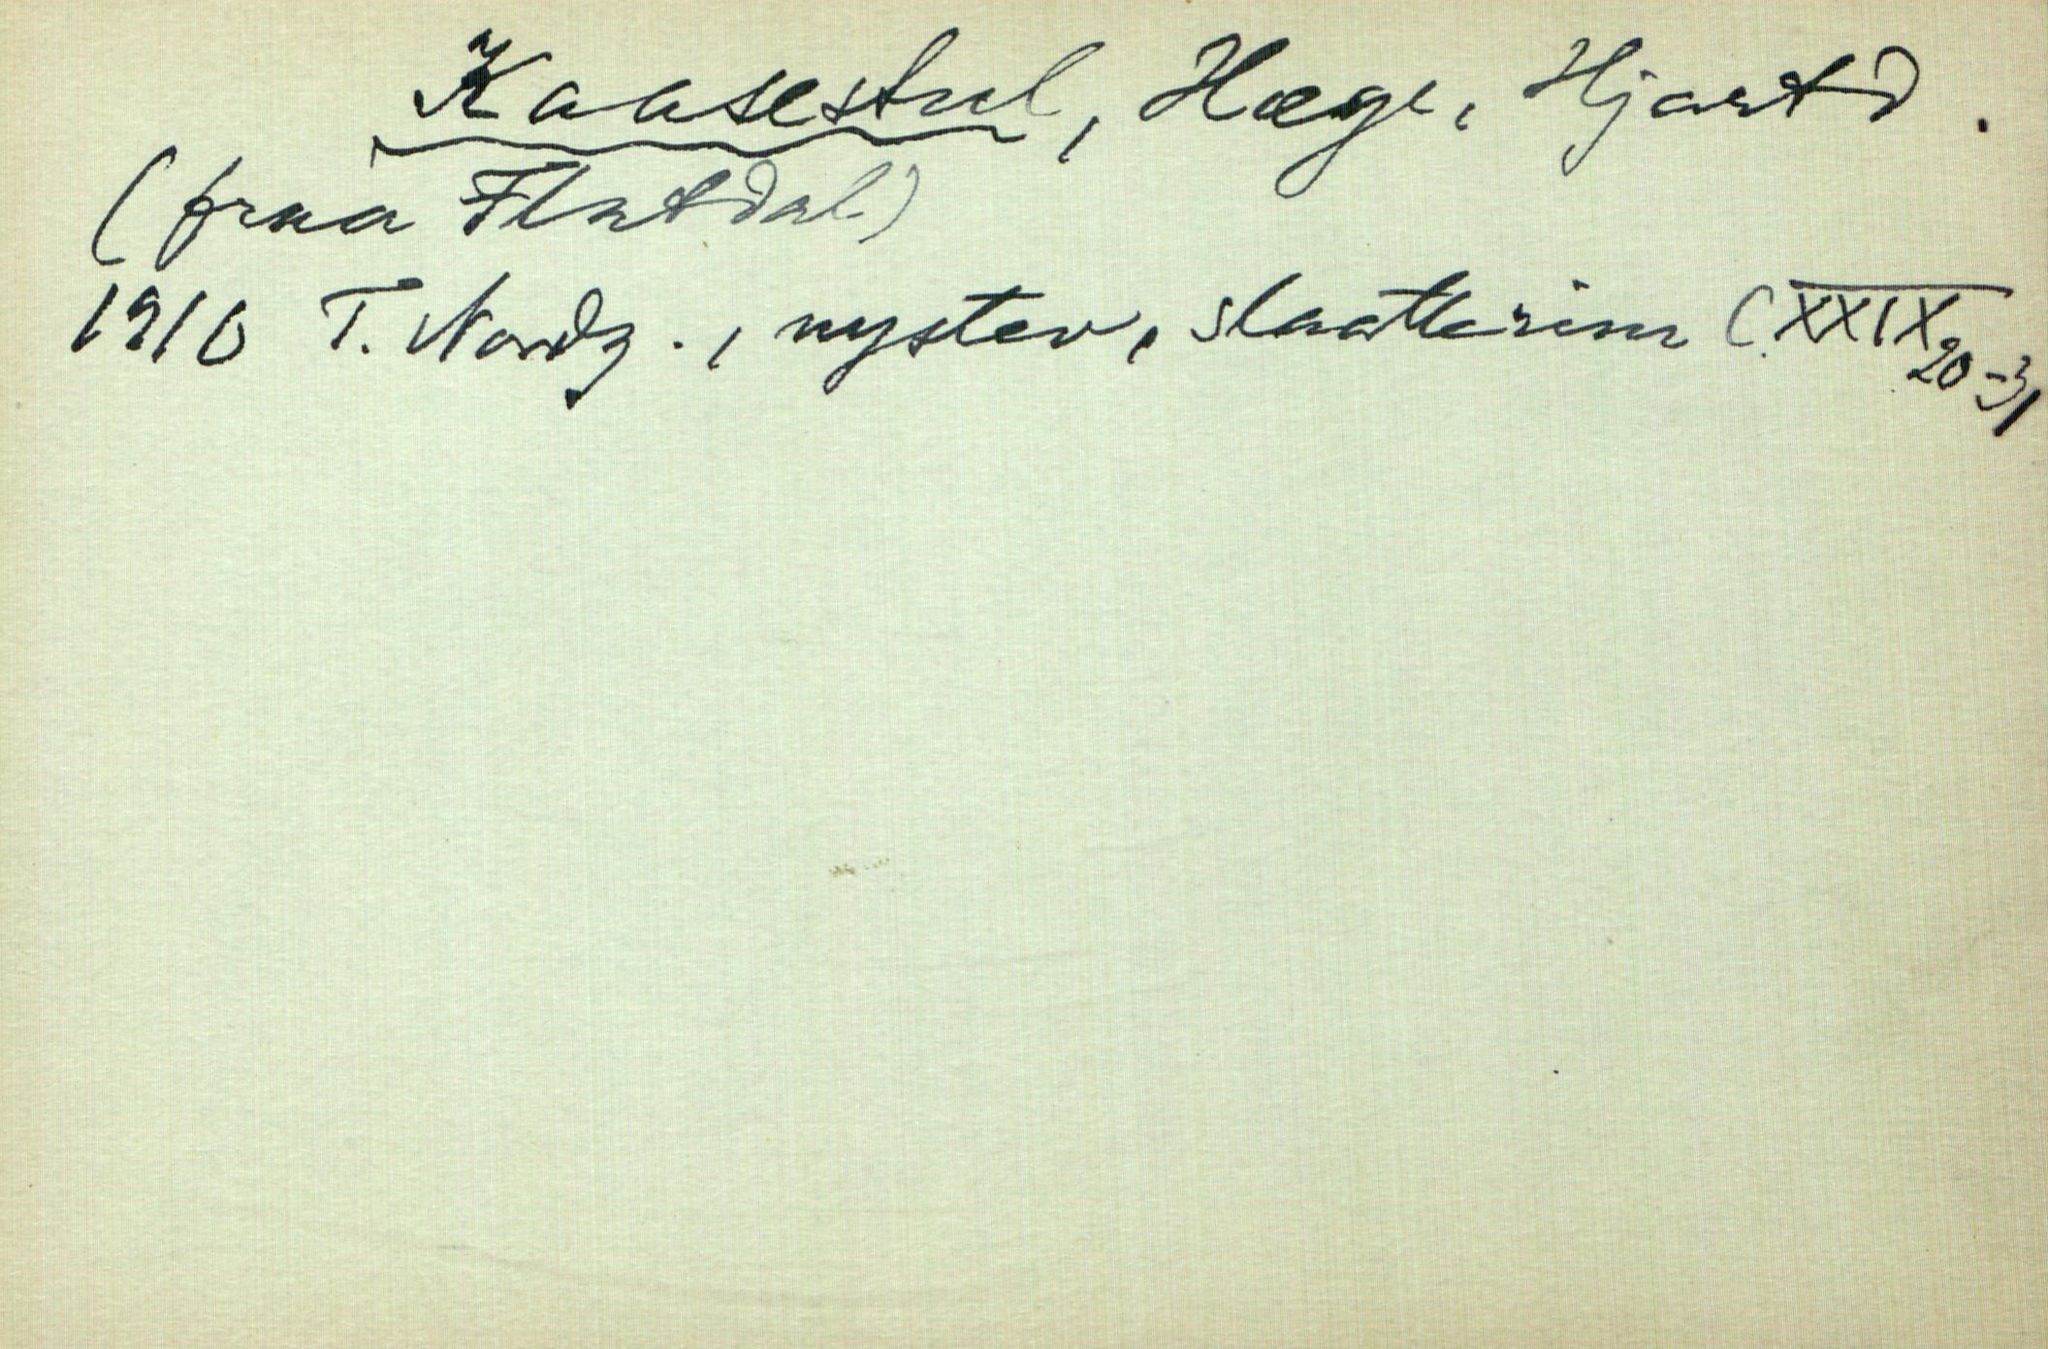 Kaasestul, Hæge, Hjartd.
(fraa Flatdal)
1910 T. Nordg., nystev, slaatterim C. XXIX 20-31